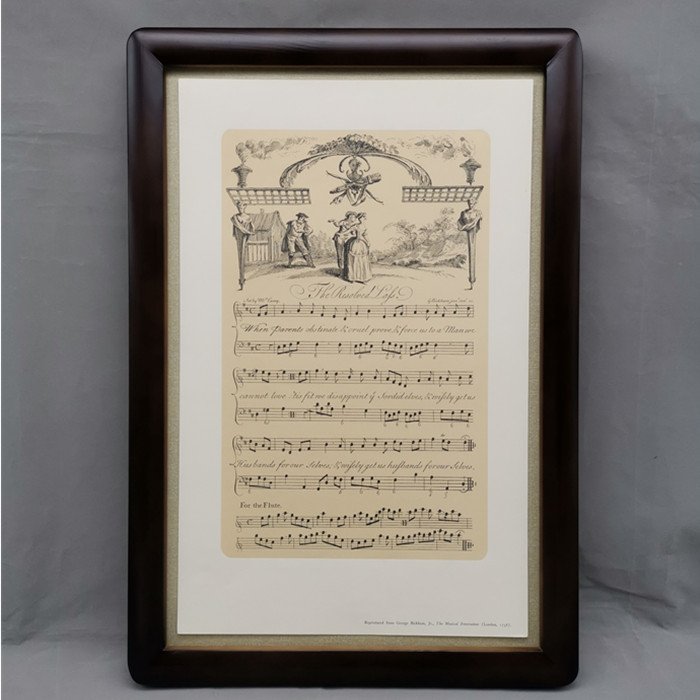 The Resolved Lass.
When Parents obstinate & cruel prove, & force us to a Man we
cannot love, 'tis fit we disappoint yͤ Sordid elves, & wisely get us
Husbands for our Selves, & wisely get us husbands for our Selves.
For the Flute.
Reproduced from George Bickham, Jr., The Musical Entertainer (London,